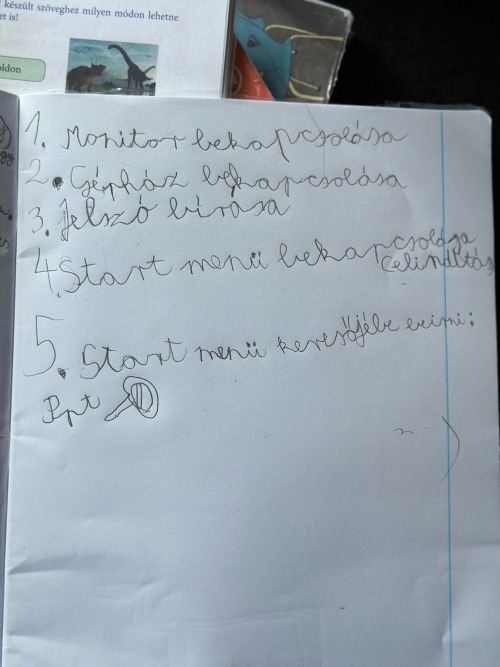 készült szöveghez milyen módon lehetne
et is!
oldon
1. Monitor bekapcsolása
2. Gépház bekapcsolása
3. Jelszó bírása
4. Start menü bekapcsolása
(elindítás
5. Start menü keresőjébe beírni:
Ppt